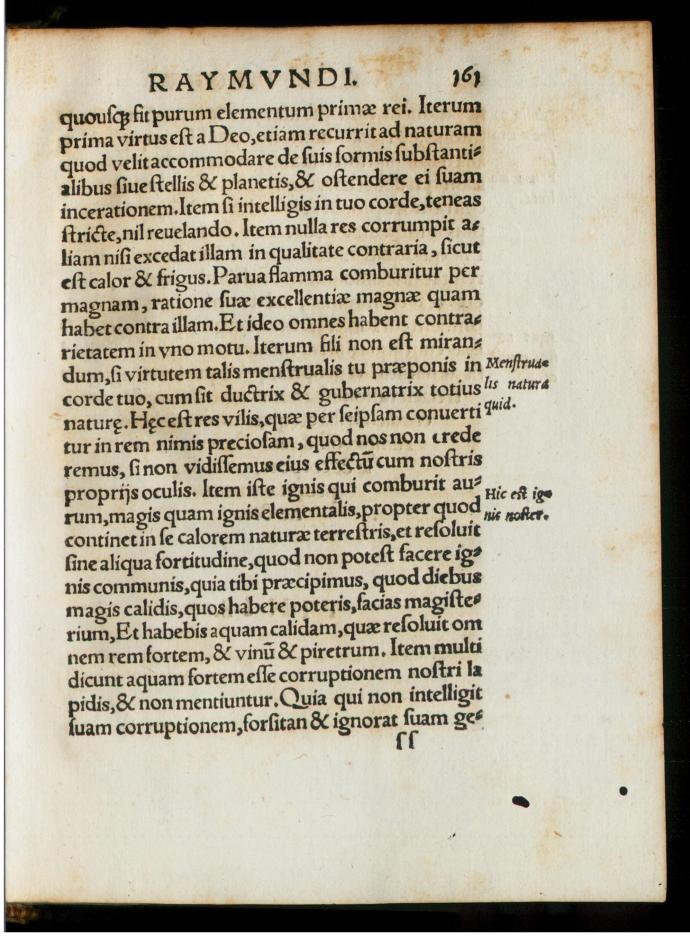 RAYMVNDI. 161
quouſqꝫ fit purum elementum primæ rei. Iterum
prima virtus eſt a Deo, etiam recurrit ad naturam
quod velit accommodare de ſuis formis ſubſtanti⸗
alibus ſiue ſtellis & planetis, & oſtendere ei ſuam
incerationem. Item ſi intelligis in tuo corde, teneas
ſtricte, nil reuelando. Item nulla res corrumpit a⸗
liam niſi excedat illam in qualitate contraria, ſicut
eſt calor & frigus. Parua flamma comburitur per
magnam, ratione ſuæ excellentiæ magnæ quam
habet contra illam. Et ideo omnes habent contra⸗
rietatem in vno motu. Iterum fili non eſt miran⸗
dum, ſi virtutem talis menſtrualis tu præponis in
corde tuo, cum ſit ductrix & gubernatrix totius
naturę. Hęc eſt res vilis, quæ per ſeipſam conuerti
tur in rem nimis precioſam, quod nos non crede
remus, ſi non vidiſſemus eius effectū cum noſtris
proprijs oculis. Item iſte ignis qui comburit au⸗
rum, magis quam ignis elementalis, propter quod
continet in ſe calorem naturæ terreſtris, et reſoluit
ſine aliqua fortitudine, quod non poteſt facere ig⸗
nis communis, quia tibi præcipimus, quod diebus
magis calidis, quos habere poteris, facias magiſte⸗
rium, Et habebis aquam calidam, quæ reſoluit om
nem rem fortem, & vinū & piretrum. Item multi
dicunt aquam fortem eſſe corruptionem noſtri la
pidis, & non mentiuntur. Quia qui non intelligit
ſuam corruptionem, forſitan & ignorat ſuam ge⸗
ſſ
Menſtrua⸗
lis natura
quid.
Hic eſt ig⸗
nis noſter.